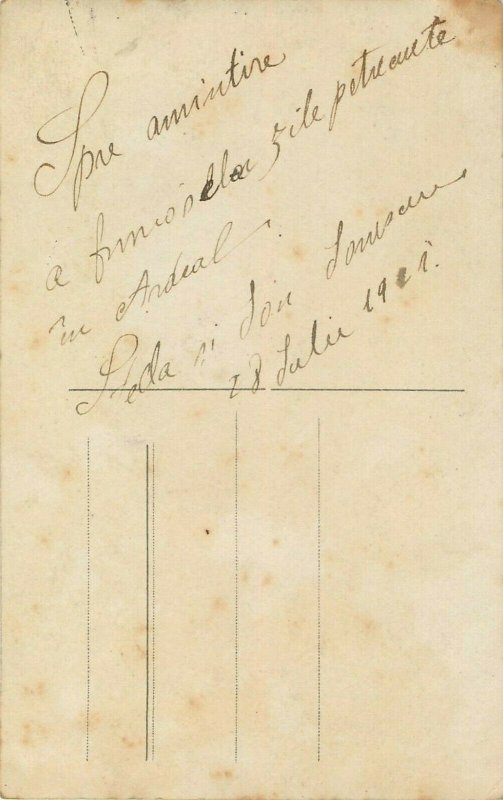 Spre amintire
a frumoselor zile petrecute
în Ardeal.
și Ion
28 Iulie 1921.